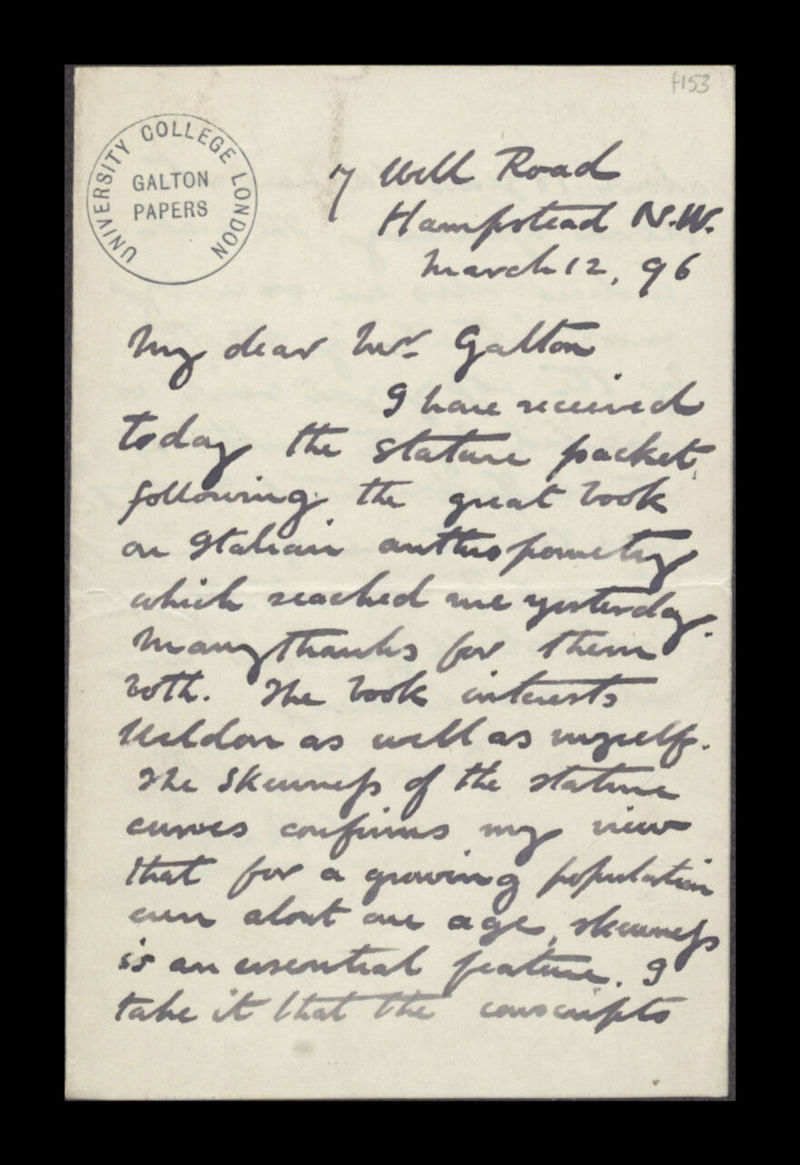 f153
UNIVERSITY COLLEGE LONDON
GALTON
PAPERS
7 Well Road
Hampstead N.W.
March 12, 96
My dear Mr. Galton
I have received
today the stature packet,
following the great book
on Italian anthropometry
which reached me yesterday.
Many thanks for them
both. The book interests
Weldon as well as myself.
The skewness of the stature
curves confirms my view
that for a growing population
even about one age, skewness
is an essential feature. I
take it that the conscripts